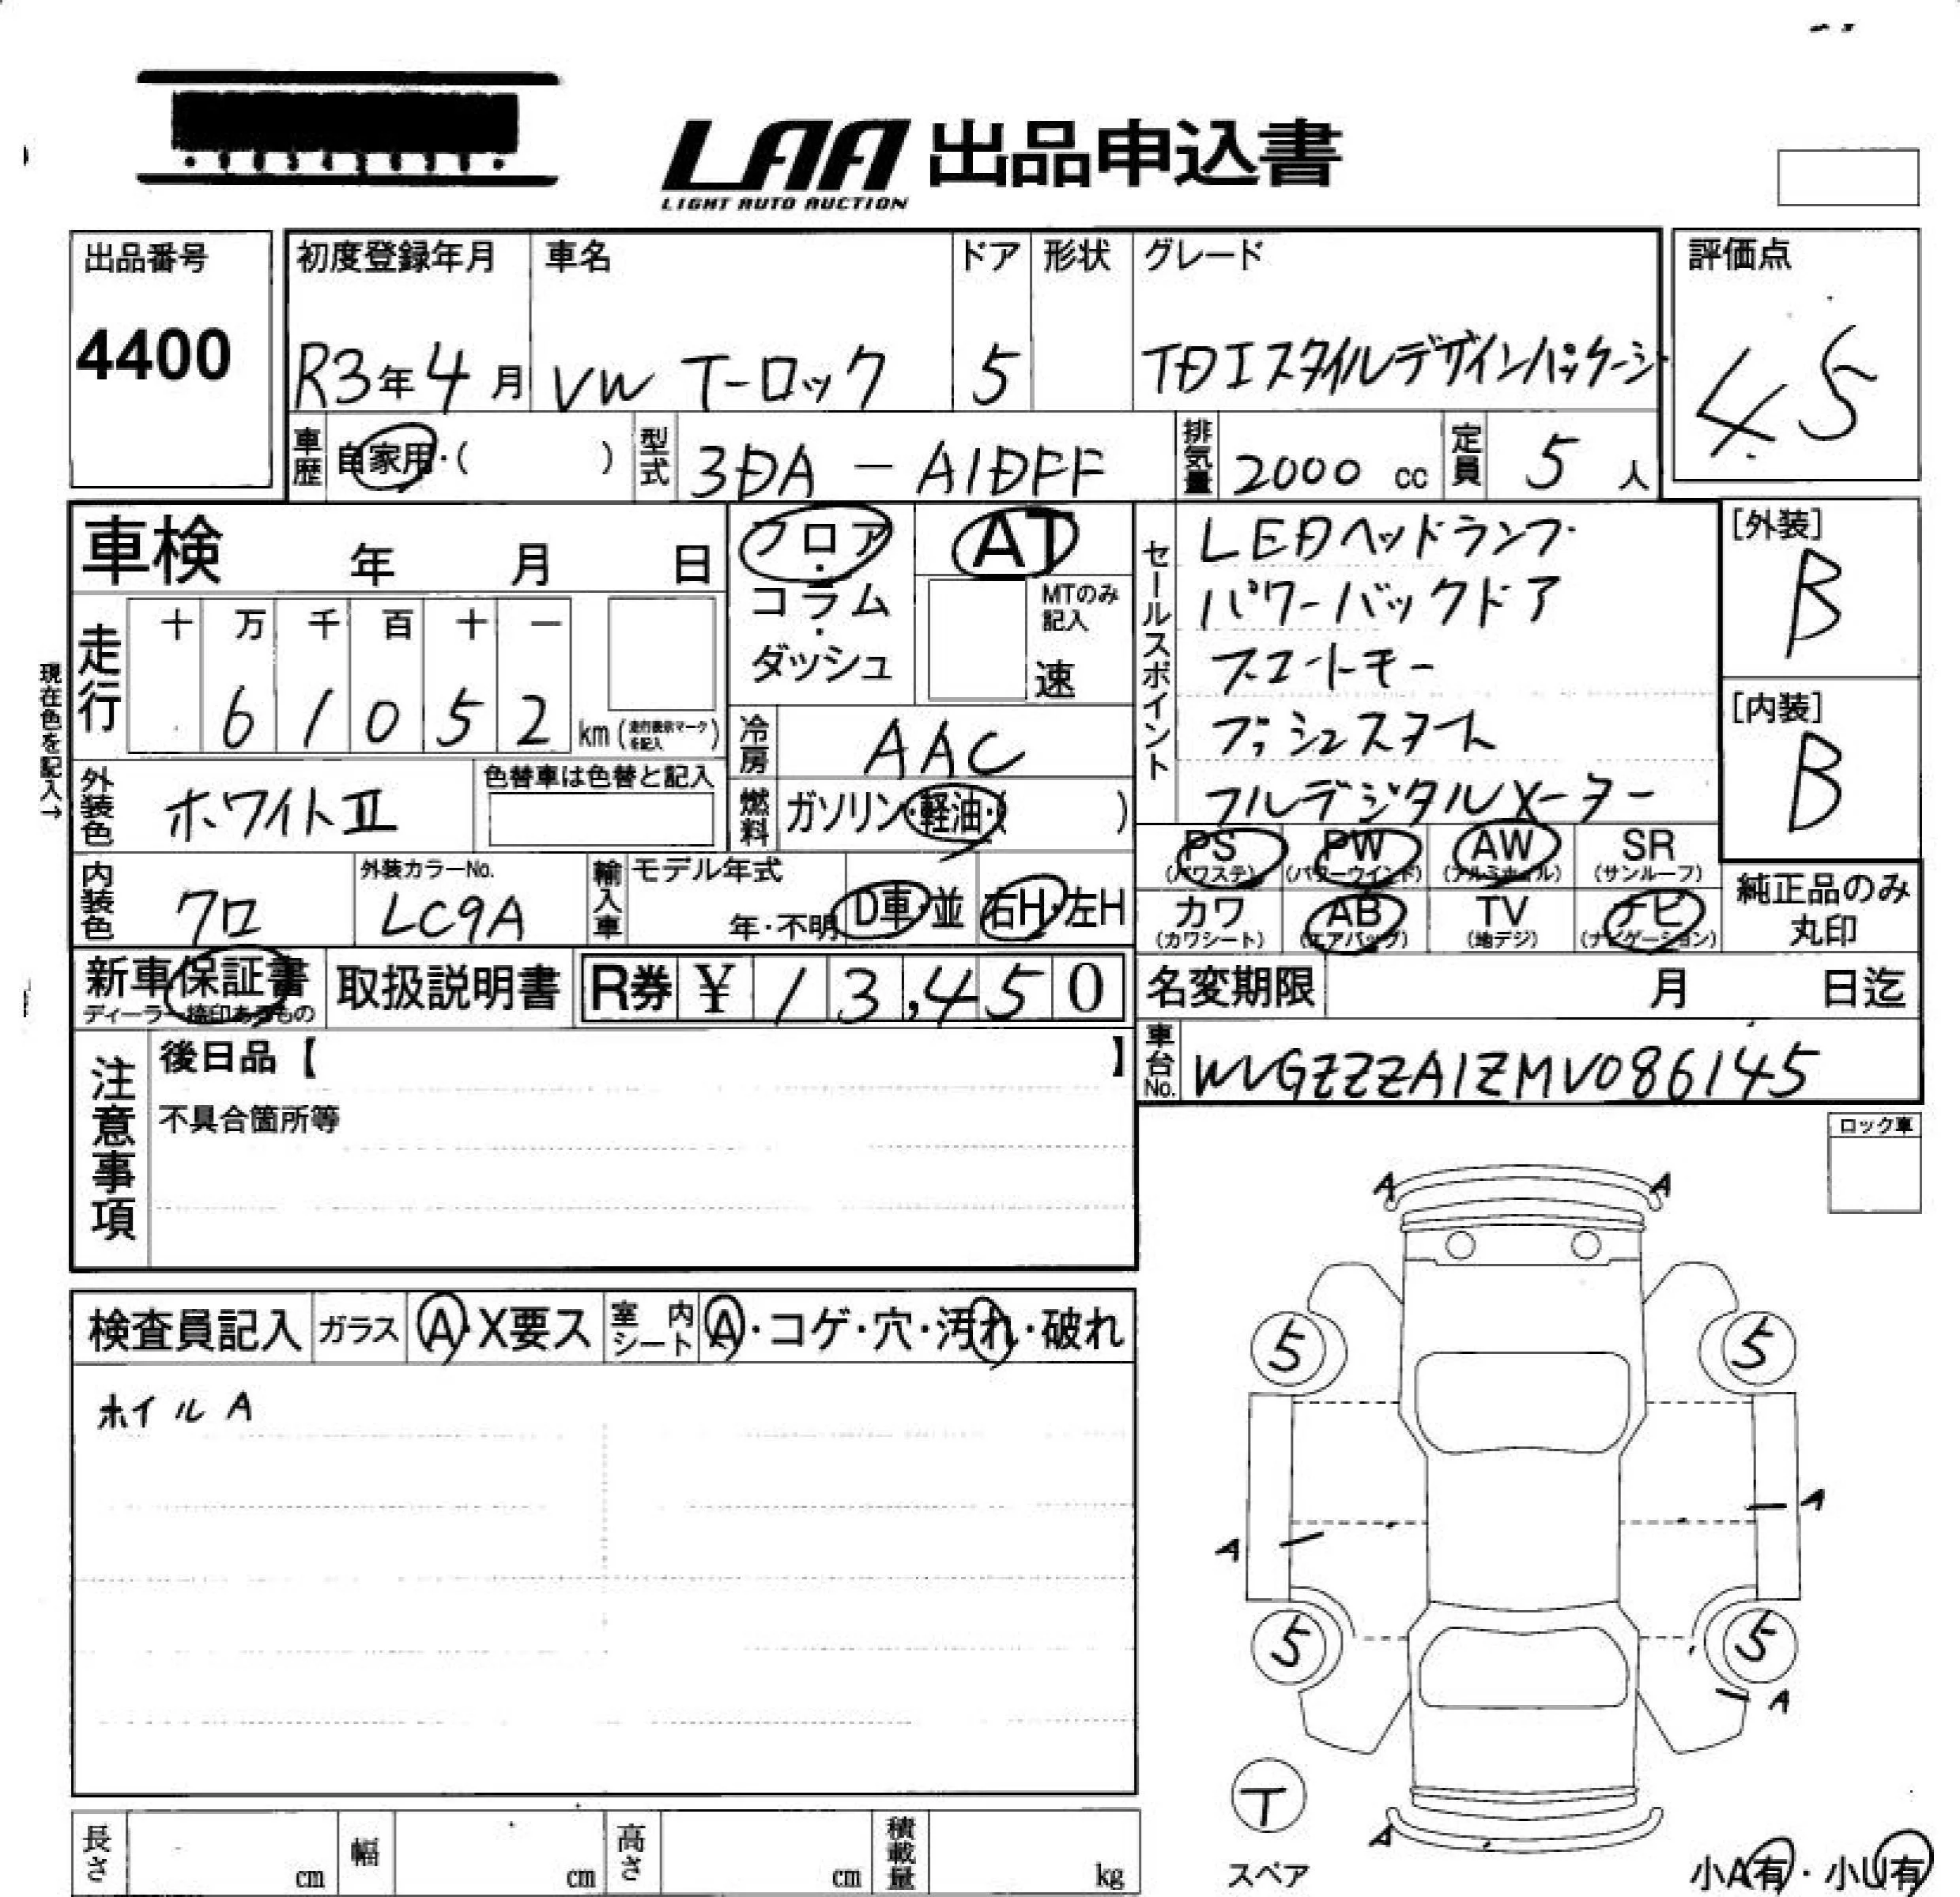 LAA 出品申込書
LIGHT AUTO AUCTION
出品番号
4400
初度登録年月
R3年4月
車名
VW T-ロック
ドア
5
形状
グレード
TDI スタイルデザインパッケージ
評価点
4.5
車歴
自家用・( )
型式
3DA - A1DFF
排気量
2000 cc
定員
5 人
車検 年 月 日
フロア・コラム・ダッシュ
AT
MTのみ記入
速
走行
十 万 千 百 十 一
6 1 0 5 2 km (走行表示マークを記入)
現在色を記入→
冷房
AAC
燃料
ガソリン・軽油・( )
セールスポイント
LEDヘッドランプ
パワーバックドア
スマートキー
プッシュスタート
フルデジタルメーター
[外装]
B
[内装]
B
外装色
ホワイトII
色替車は色替と記入
内装色
クロ
外装カラーNo.
LC9A
輸入車
モデル年式
年・不明
D車・並
右H・左H
PS (パワステ)
PW (パワーウインド)
AW (アルミホイル)
SR (サンルーフ)
カワ (カワシート)
AB (エアバッグ)
TV (地デジ)
ナビ (ナビゲーション)
純正品のみ丸印
新車保証書
ディーラー捺印あるもの
取扱説明書
R券 ¥ 13,450
名変期限 月 日迄
車台No.
WVGZZZA1ZMV086145
注意事項
後日品【 】
不具合箇所等
ロック車
検査員記入
ガラス
A・X要ス
室内シート
A・コゲ・穴・汚れ・破れ
ホイルA
A A
5 5
A
A
5 5
A
T
スペア
A
小A有・小U有
長さ cm
幅 cm
高さ cm
積載量 kg